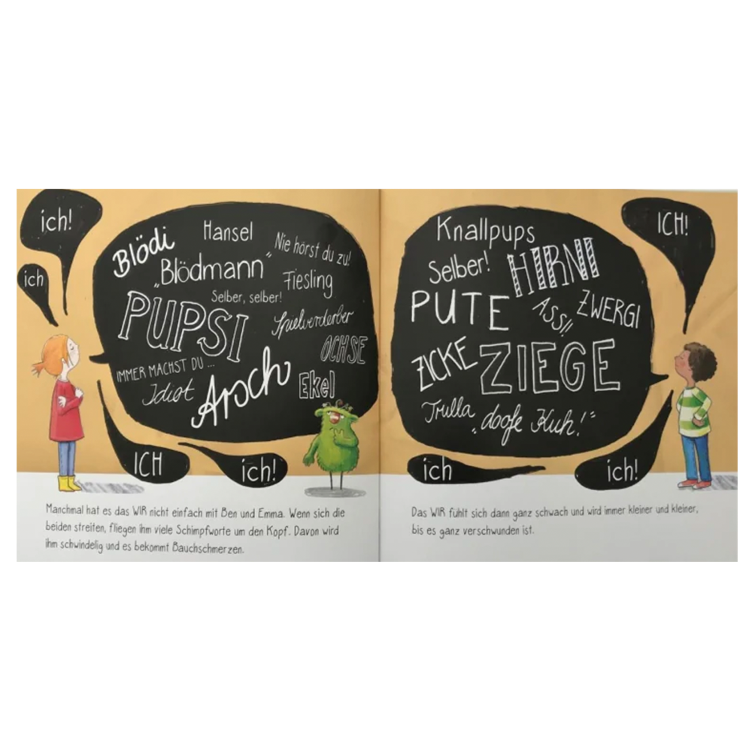 ich!
ich
Blödi
Hansel
Nie hörst du zu!
„Blödmann"
Fiesling
Selber, selber!
PUPSI
Spielverderber
OCHSE
IMMER MACHST DU ...
Idiot
Aroch
Ekel
ICH
ich!
Manchmal hat es das WIR nicht einfach mit Ben und Emma. Wenn sich die
beiden streiten, fliegen ihm viele Schimpfworte um den Kopf. Davon wird
ihm schwindelig und es bekommt Bauchschmerzen.
ICH!
Knallpups
Selber!
HIRNI
PUTE
ASSI!
ZWERGI
ZICKE
ZIEGE
Trulla
„doofe Kuh!"
ich
ich!
Das WIR fühlt sich dann ganz schwach und wird immer kleiner und kleiner,
bis es ganz verschwunden ist.